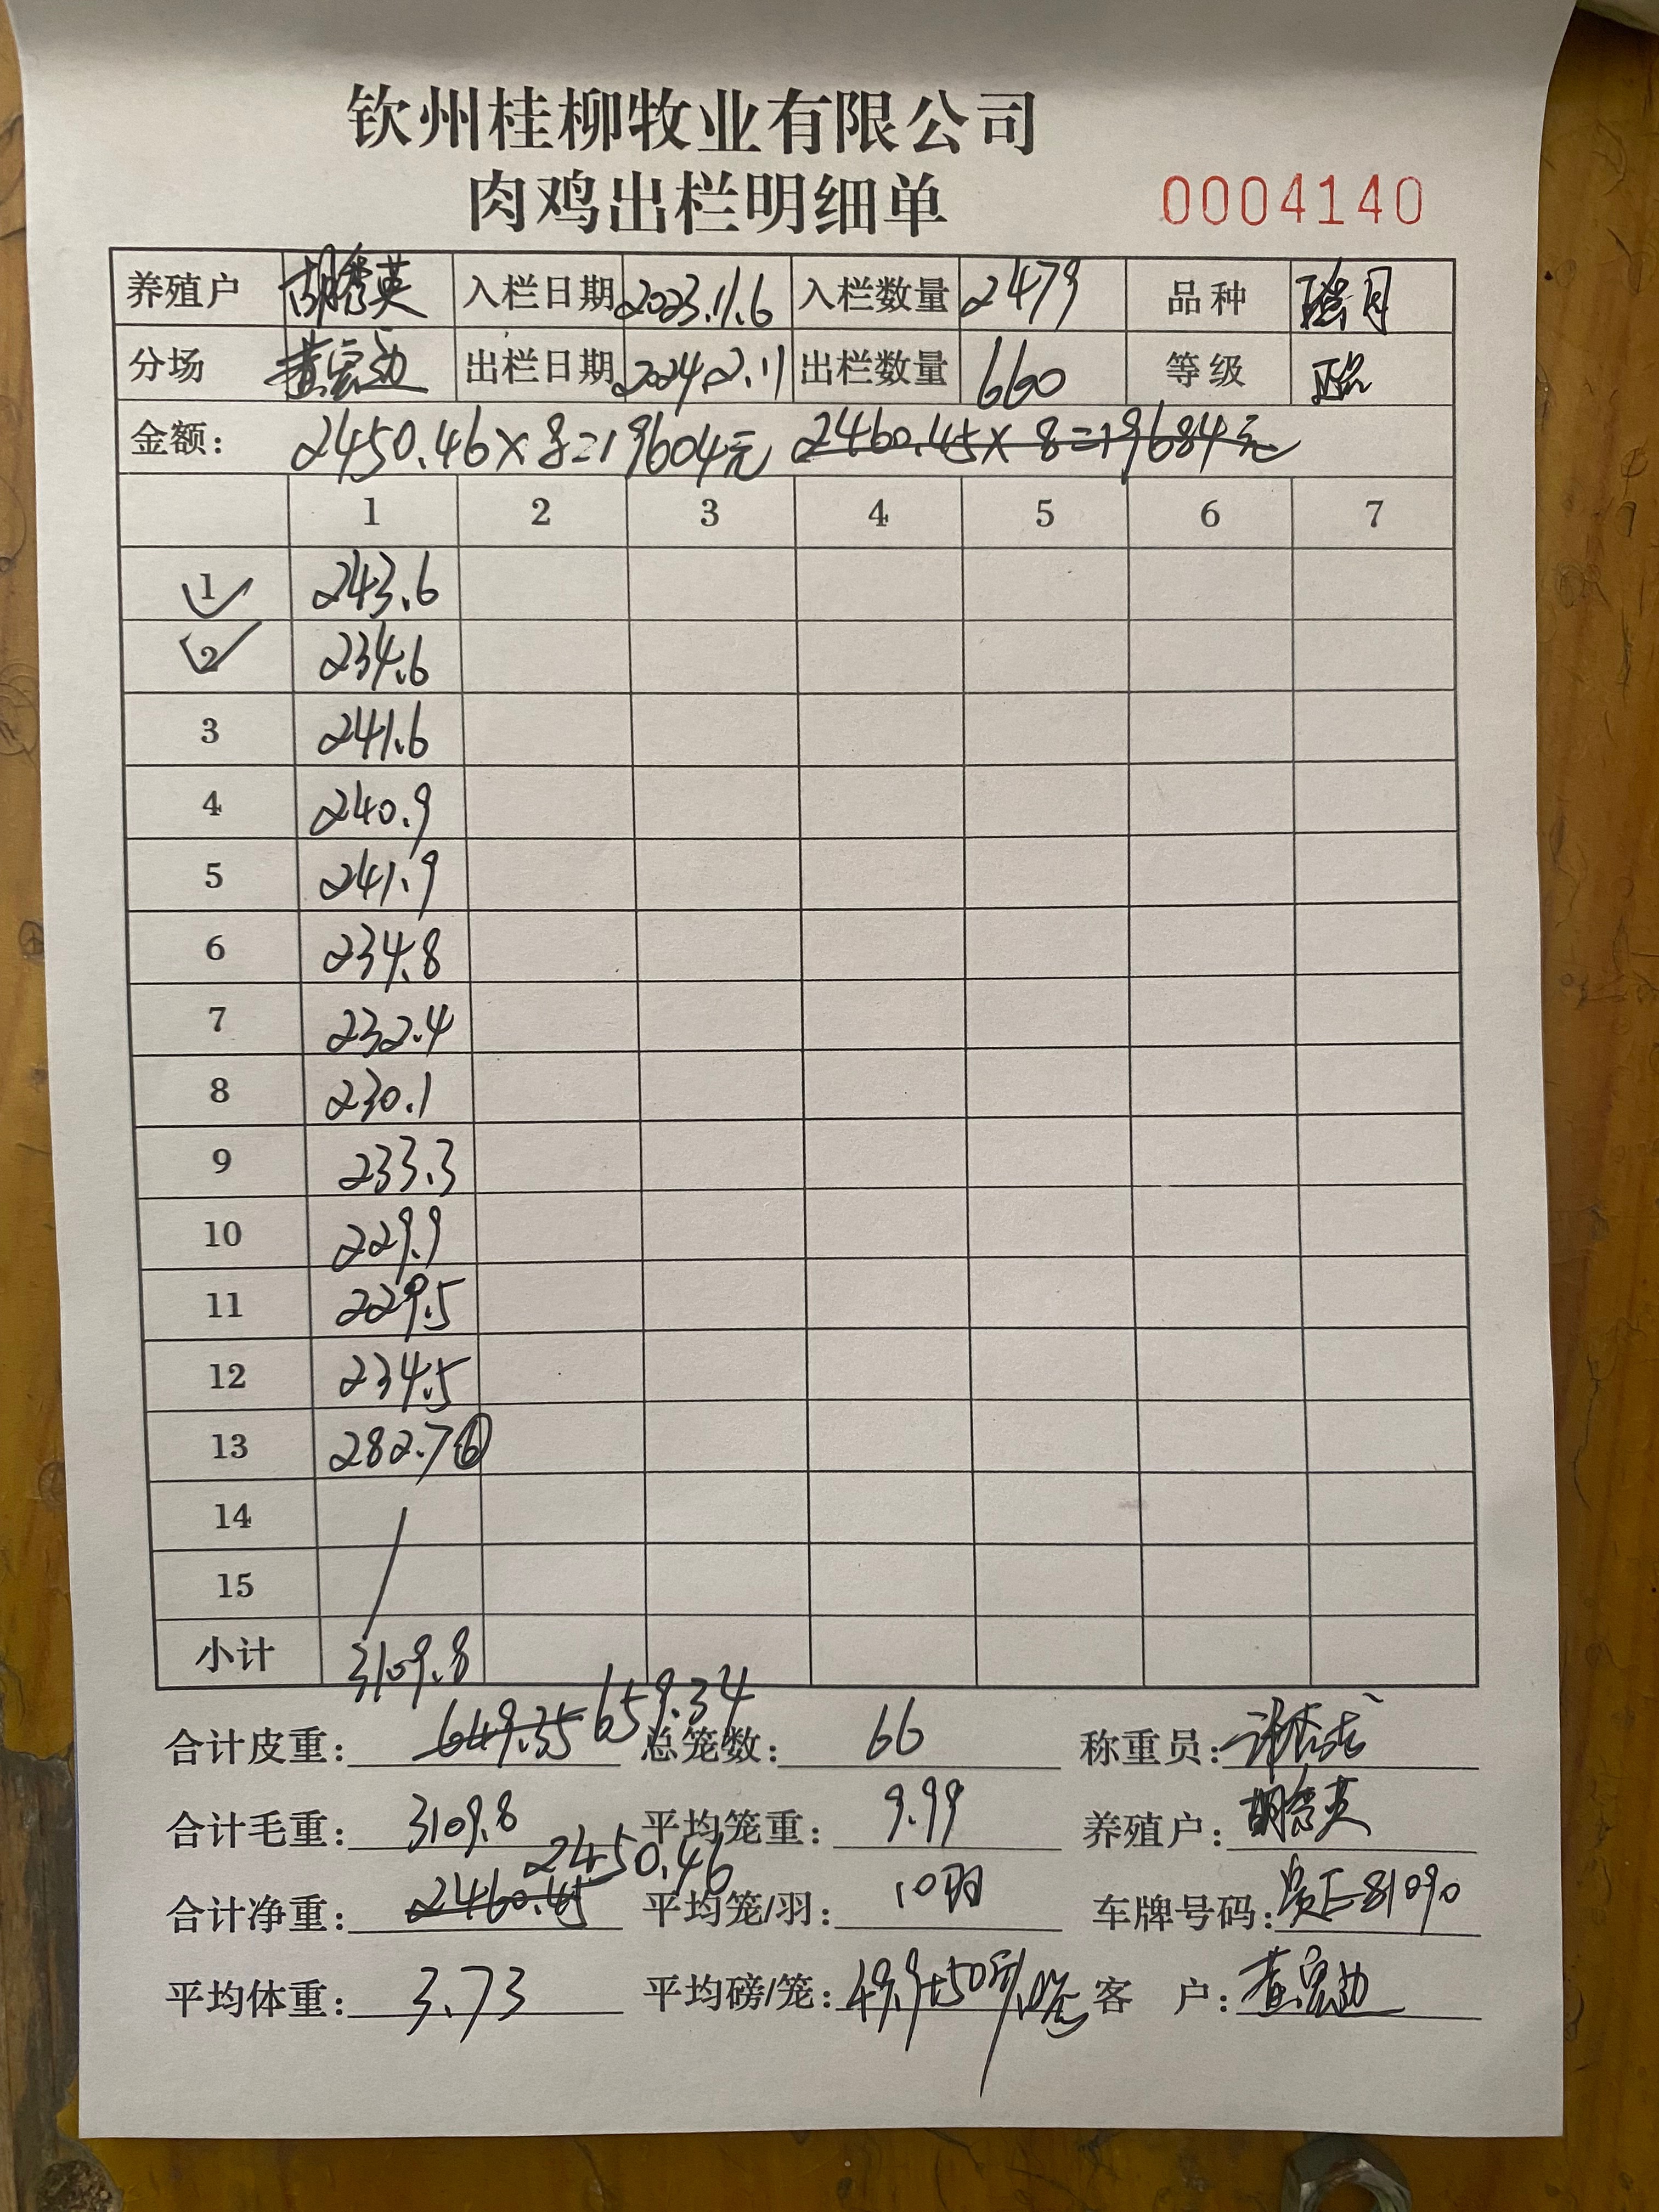 钦州桂柳牧业有限公司
肉鸡出栏明细单 0004140
养殖户 胡秀英 入栏日期 2023.11.6 入栏数量 2479 品种
分场 黄宏边 出栏日期 2024.2.11 出栏数量 660 等级
金额: 2450.46×8=19604元 2460.45×8=19684元
1 2 3 4 5 6 7
1 243.6
2 234.6
3 241.6
4 240.9
5 241.9
6 234.8
7 232.4
8 230.1
9 233.3
10 229.9
11 229.5
12 234.5
13 282.7 ⑥
14
15
小计 3109.8
合计皮重: 649.35 659.34 总笼数: 66 称重员:
合计毛重: 3109.8 平均笼重: 9.99 养殖户: 胡秀英
合计净重: 2460.45 2450.46 平均笼/羽: 10羽 车牌号码: 81090
平均体重: 3.73 平均磅/笼: 客 户: 黄宏边